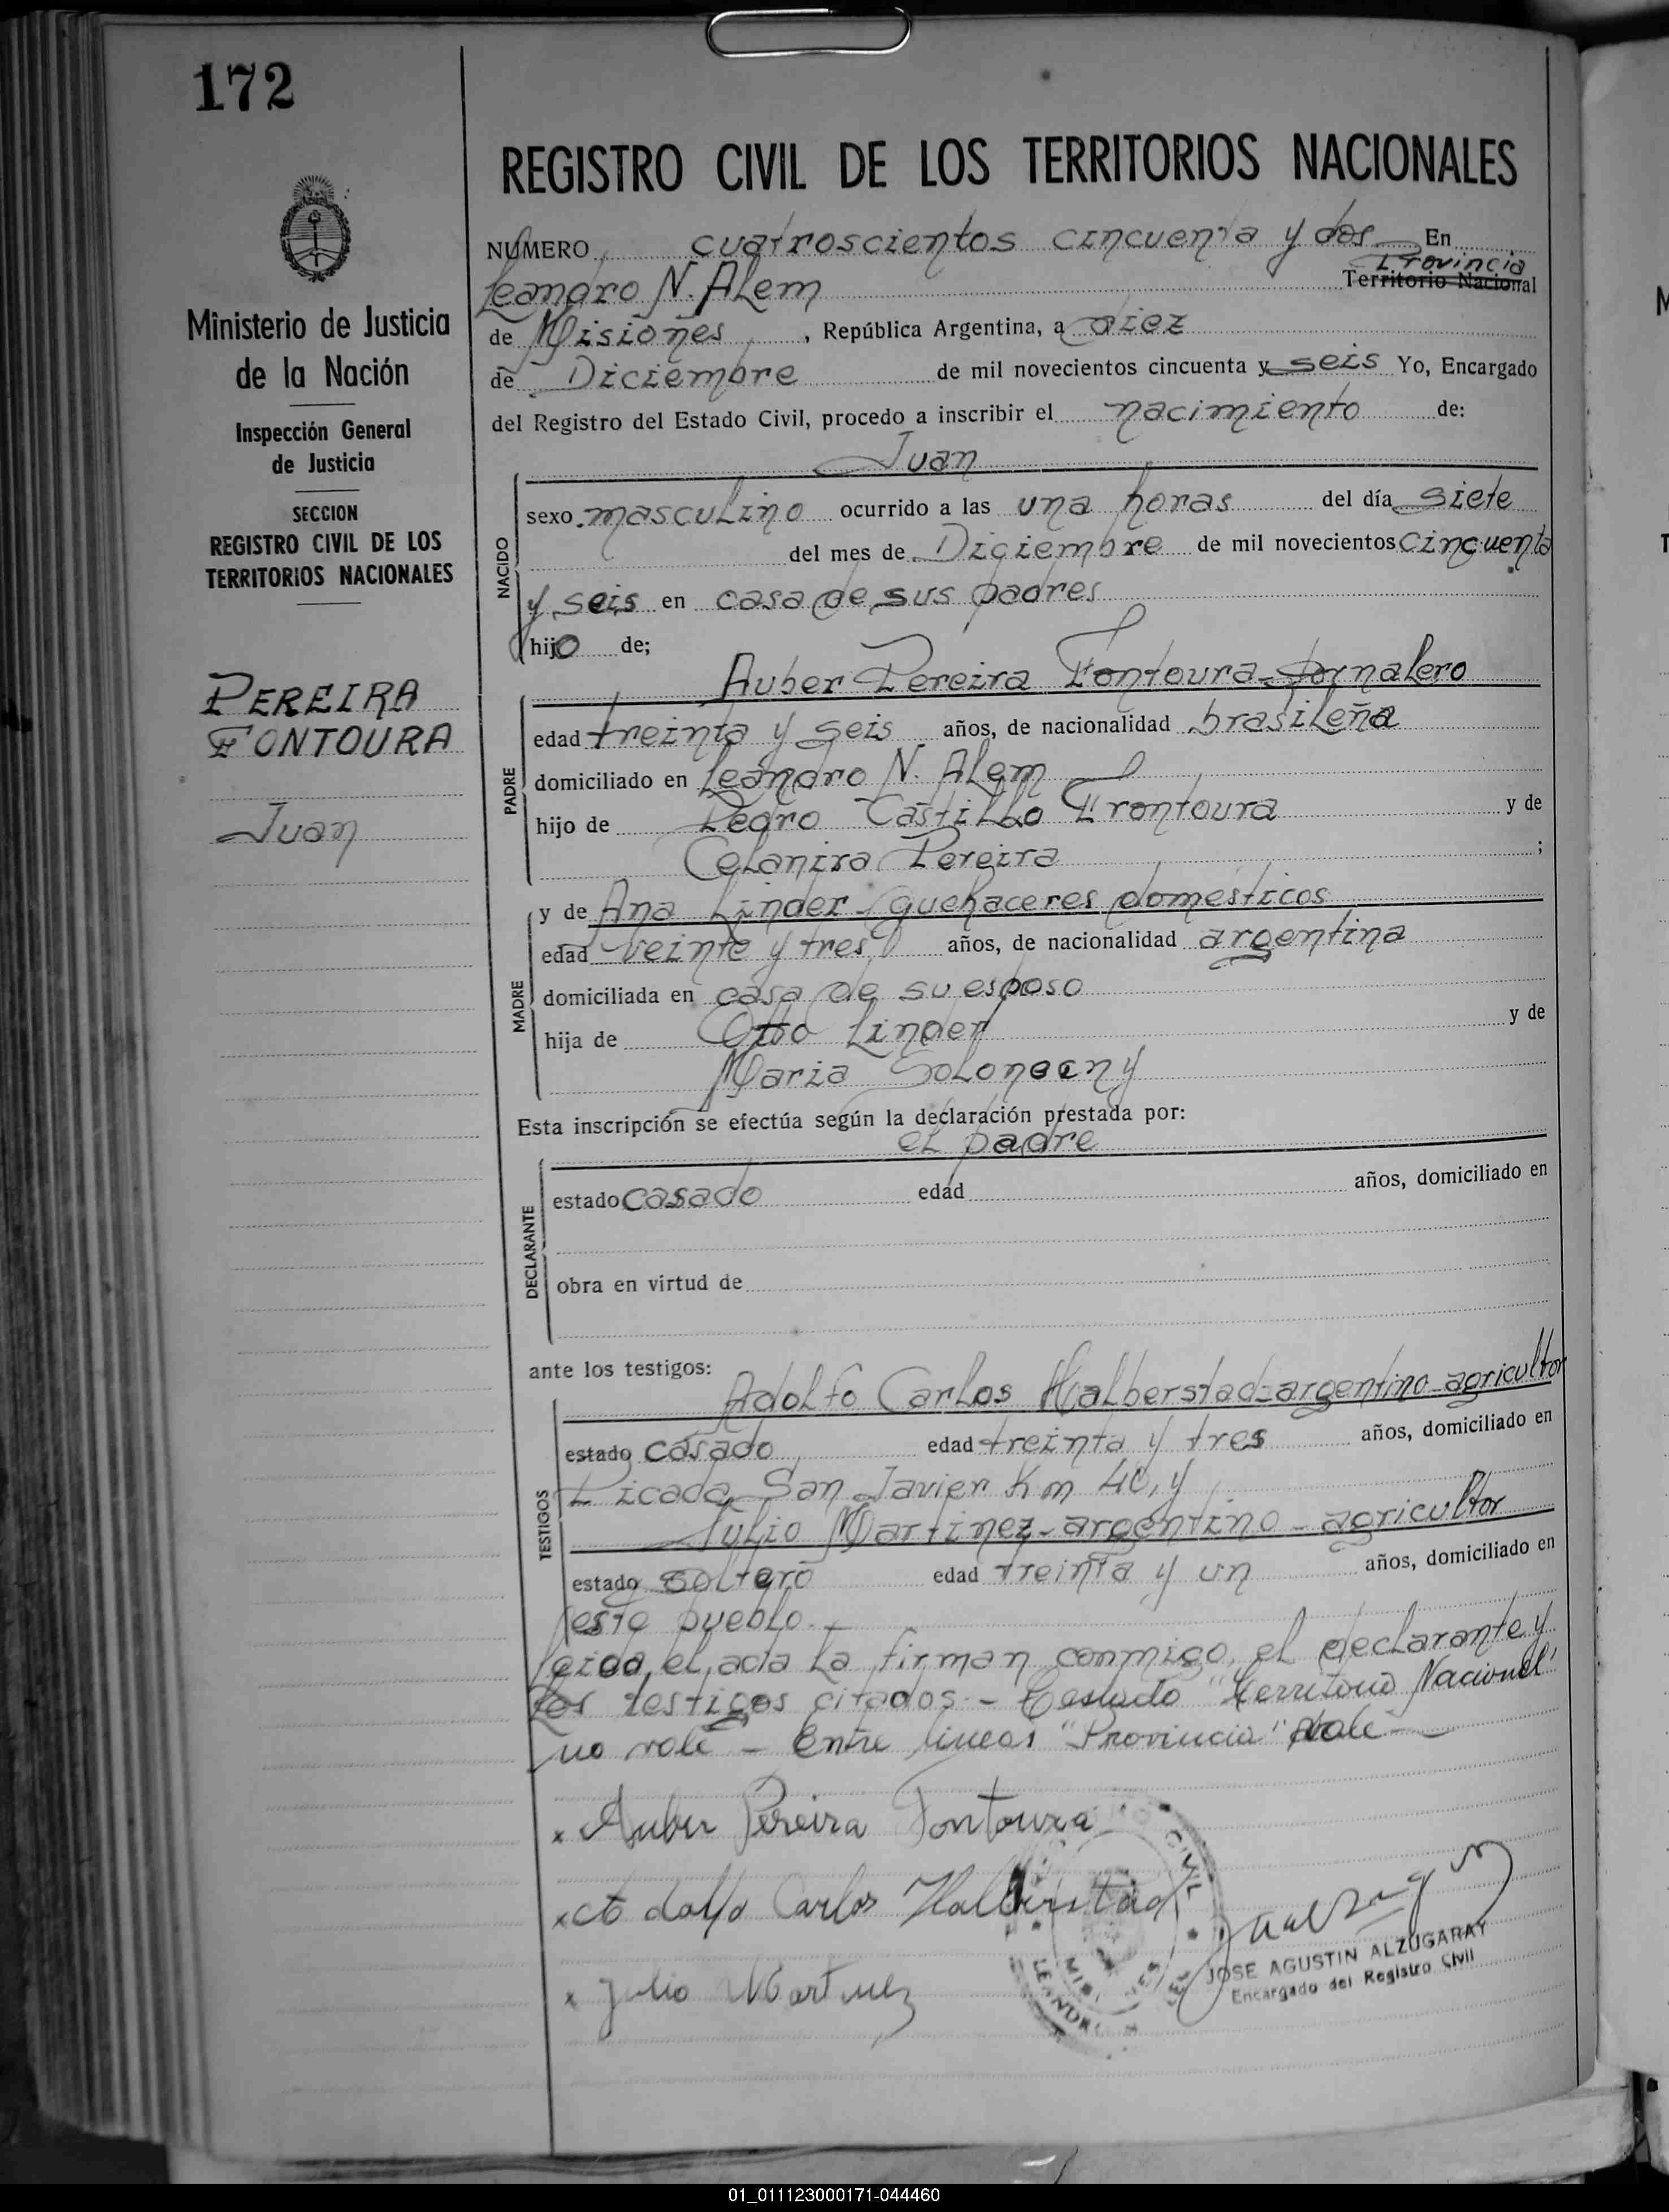 172
REGISTRO CIVIL DE LOS TERRITORIOS NACIONALES
Ministerio de Justicia
de la Nación
Inspección General
de Justicia
SECCION
REGISTRO CIVIL DE LOS
TERRITORIOS NACIONALES
PEREIRA
FONTOURA
Juan
NUMERO cuatroscientos cincuenta y dos En
Leandro N. Alem Provincia Territorio Nacional
de Misiones, República Argentina, a diez
de Diciembre de mil novecientos cincuenta y seis Yo, Encargado
del Registro del Estado Civil, procedo a inscribir el nacimiento de:
Juan
NACIDO
sexo masculino ocurrido a las una horas del día siete
del mes de Diciembre de mil novecientos cincuenta
y seis en casa de sus padres
hijo de;
Auber Pereira Fontoura-Jornalero
PADRE
edad treinta y seis años, de nacionalidad brasileña
domiciliado en Leandro N. Alem
hijo de Pedro Castillo Frontoura y de
Celanira Pereira ;
MADRE
y de Ana Linder-quehaceres domésticos
edad veinte y tres años, de nacionalidad argentina
domiciliada en casa de su esposo
hija de Otto Linder y de
Maria
Esta inscripción se efectúa según la declaración prestada por:
el padre
DECLARANTE
estado casado edad años, domiciliado en
obra en virtud de
ante los testigos:
Adolfo Carlos Halberstad-argentino-agricultor
TESTIGOS
estado casado edad treinta y tres años, domiciliado en
Picada San Javier Km 40, y
Julio Martinez-argentino-agricultor
estado soltero edad treinta y un años, domiciliado en
este pueblo.-
Leida el acta la firman conmigo, el declarante y
los testigos citados.- Testado "Territorio Nacional"
no vale - Entre lineas "Provincia" vale -
x Auber Pereira Fontoura
x Adolfo Carlos Halberstad
x Julio Martinez
CIVIL
LEANDRO
JOSE AGUSTIN ALZUGARAY
Encargado del Registro Civil
01_011123000171-044460